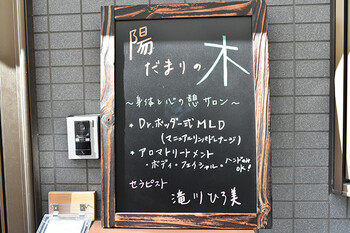 陽だまりの木
～身体と心の憩サロン～
• Dr.ボッダー式MLD
(マニュアルリンパドレナージ)
• アロマトリートメント
・ボディ・フェイシャル・ハンドのみOK!
セラピスト
滝川ひろ美